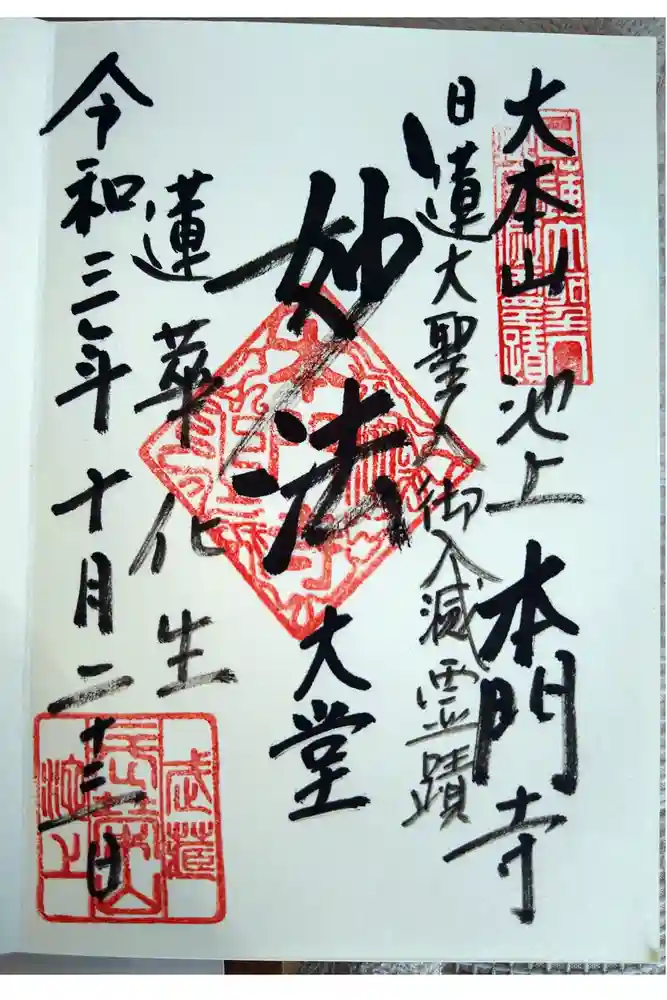 大本山 池上 本門寺
日蓮大聖人御入滅霊蹟
妙法 大堂
蓮華化生
令和三年十月二十三日
武蔵
長榮山
池上